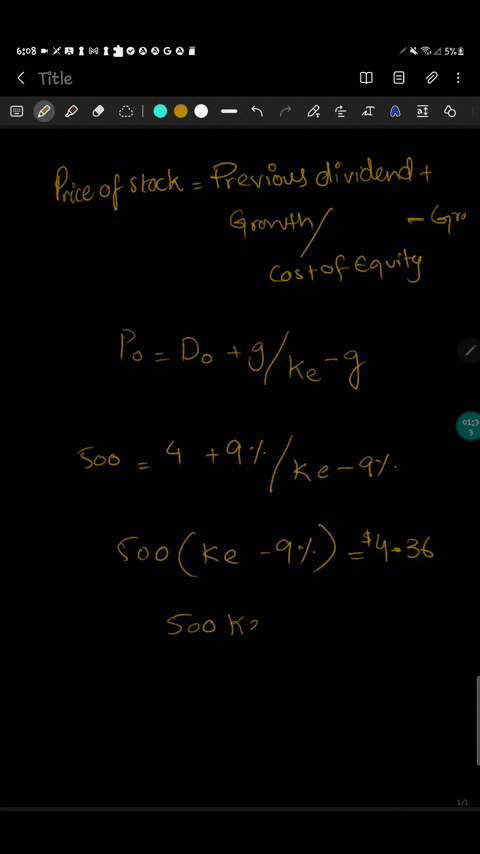 6:08
5%
Title
Price of stock = Previous dividend +
Growth/ - Gro
Cost of Equity
P0 = D0 + g/Ke - g
500 = 4 + 9%/Ke - 9%.
500(Ke - 9%) = $4.36
500 K
01:3
3
1/1